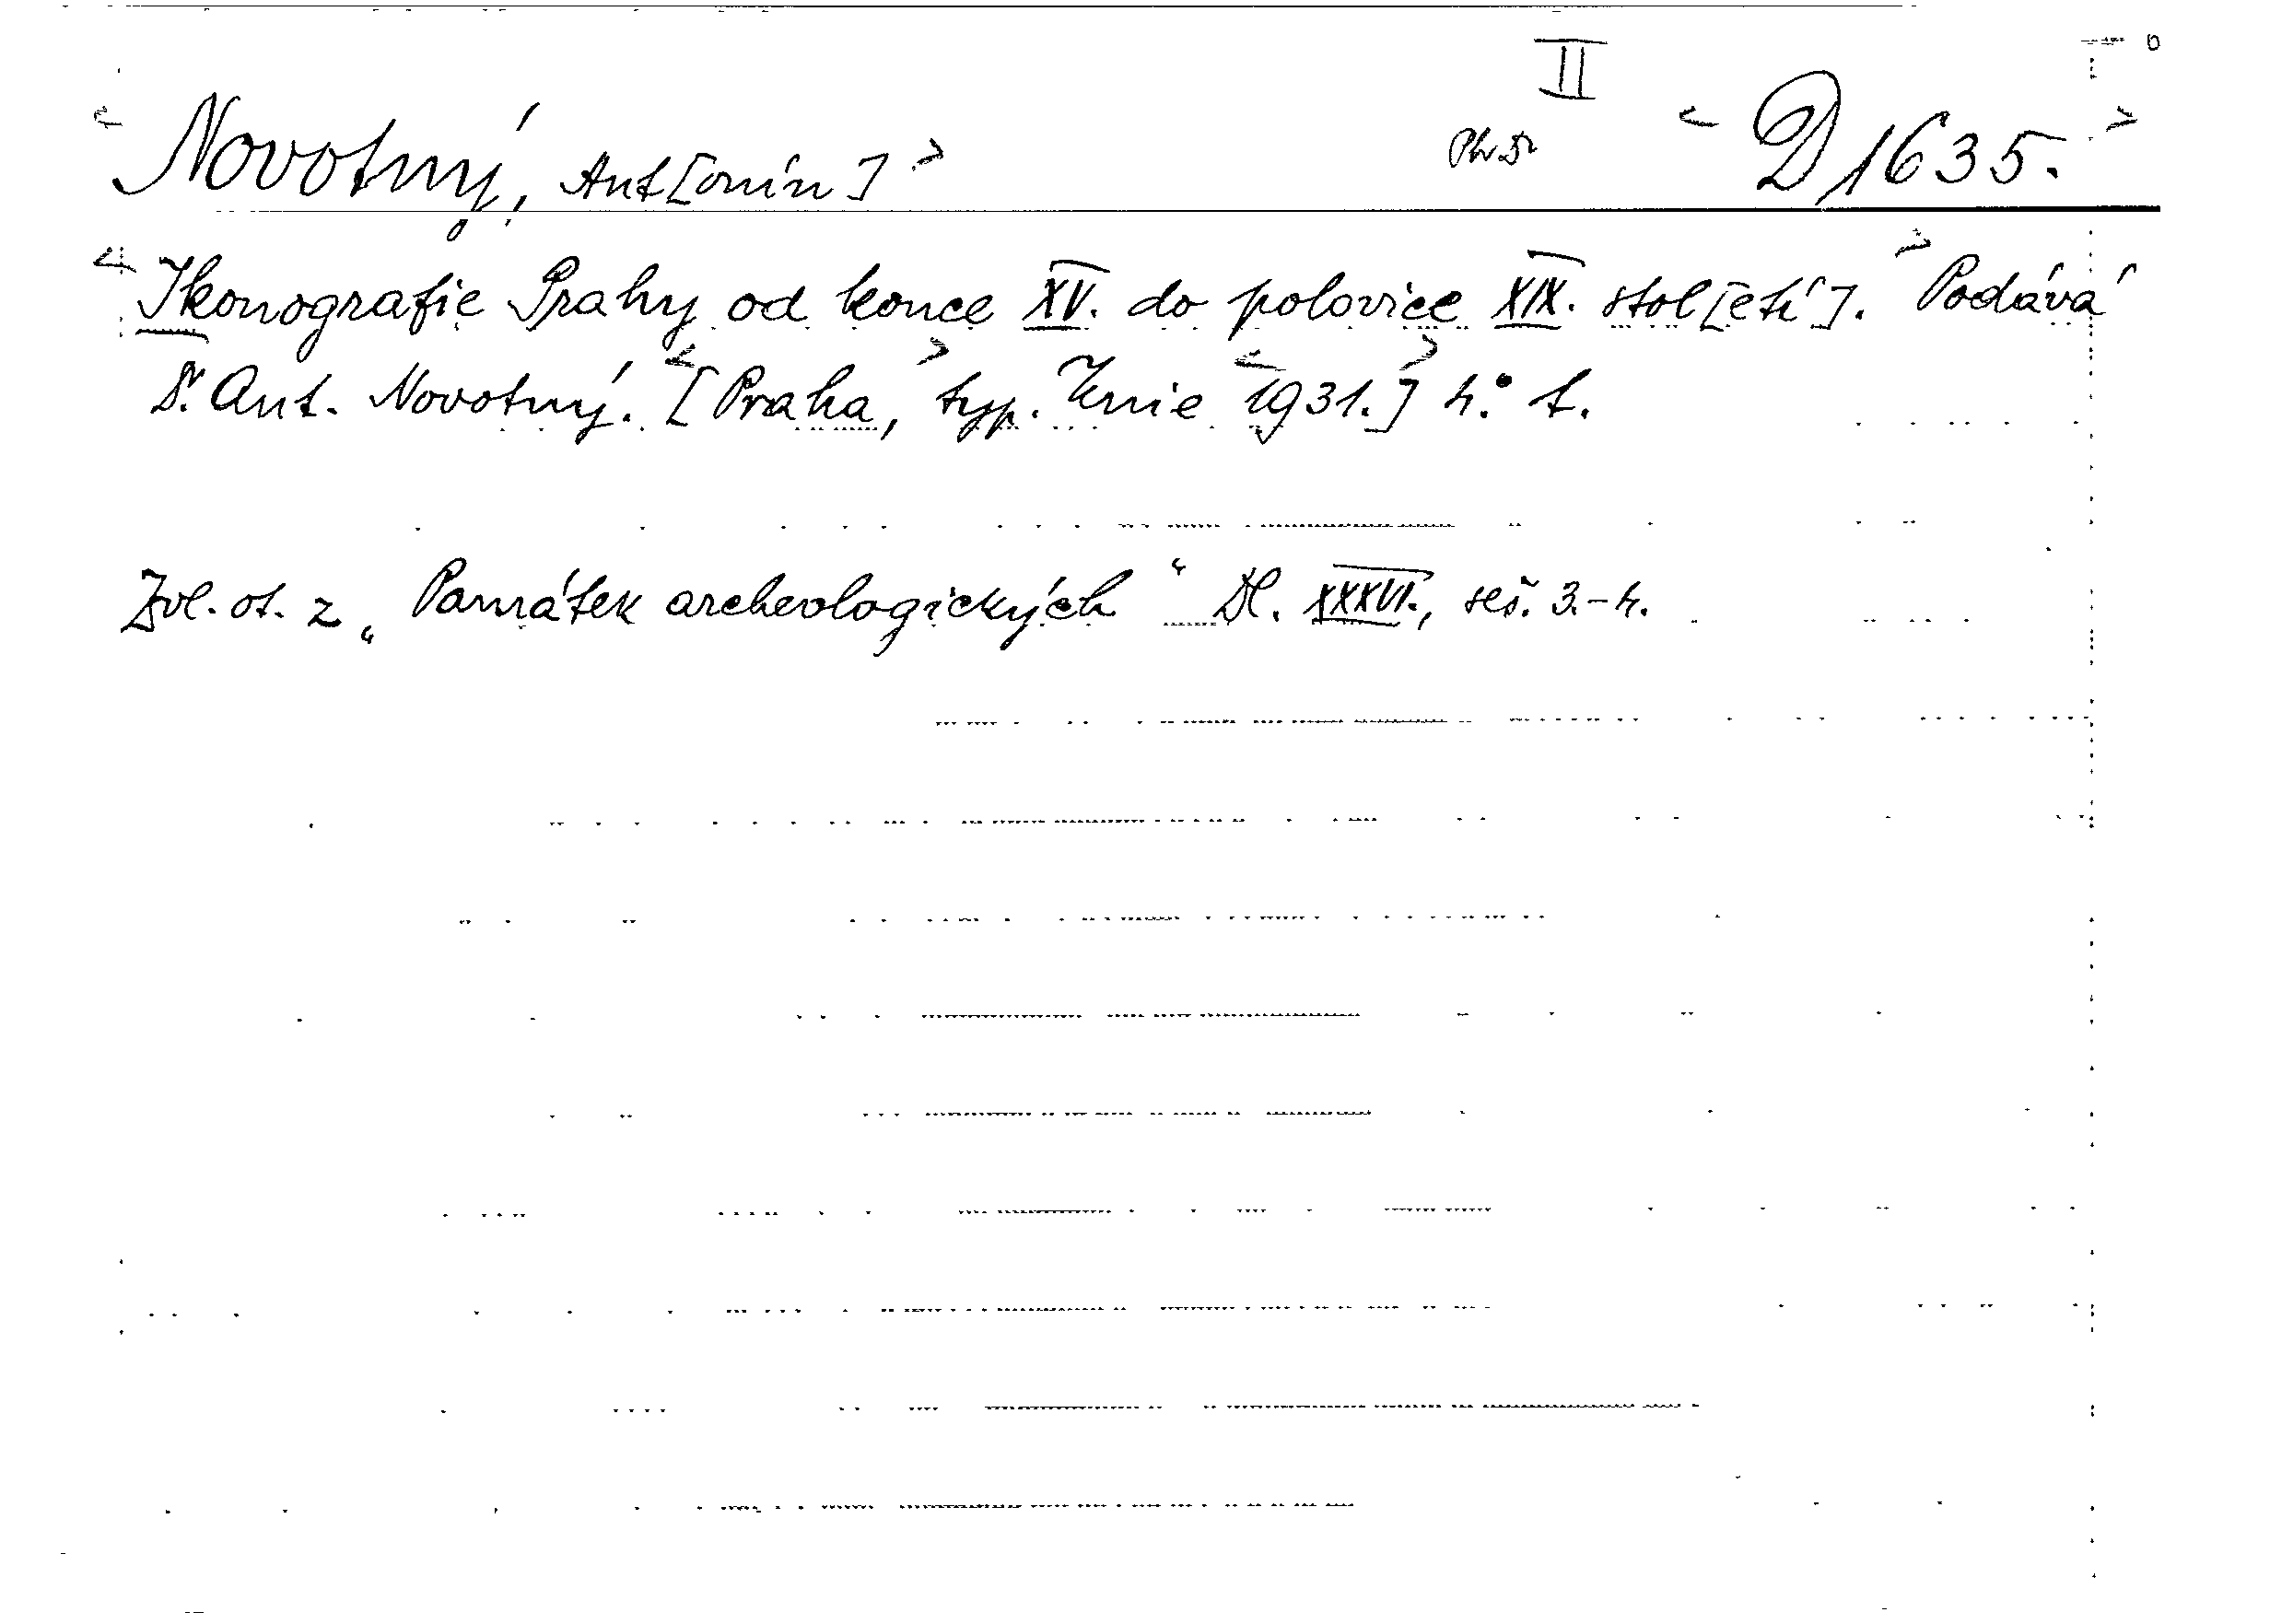 II
<Novotný, Ant[onín]> Ph.Dr <D 1635.>
<Ikonografie Prahy od konce XV. do polovice XIX. stol[etí].> Podává
Dr. Ant. Novotný. <[Praha,> typ. Unie <1931.]> 4.° f.
Zvl. ot. z „Památek archeologických“ Dl. XXXVI., seš. 3.-4.